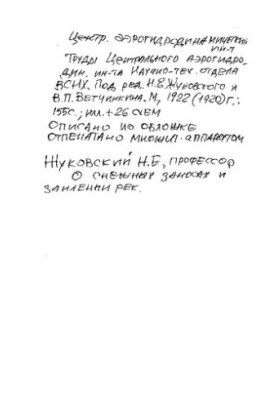 Центр. аэрогидродинамический
ин-т
Труды Центрального аэрогидро-
дин. ин-та Научно-тех. отдела
ВСНХ. Под ред. Н.Е. Жуковского и
В.П. Ветчинкина. М, 1922 (1920) г.:
155с.; ил. + 26 схем
Описано по обложке
Отпечатано множил. аппаратом
Жуковский Н.Е, профессор
О снежных заносах и
заилении рек.